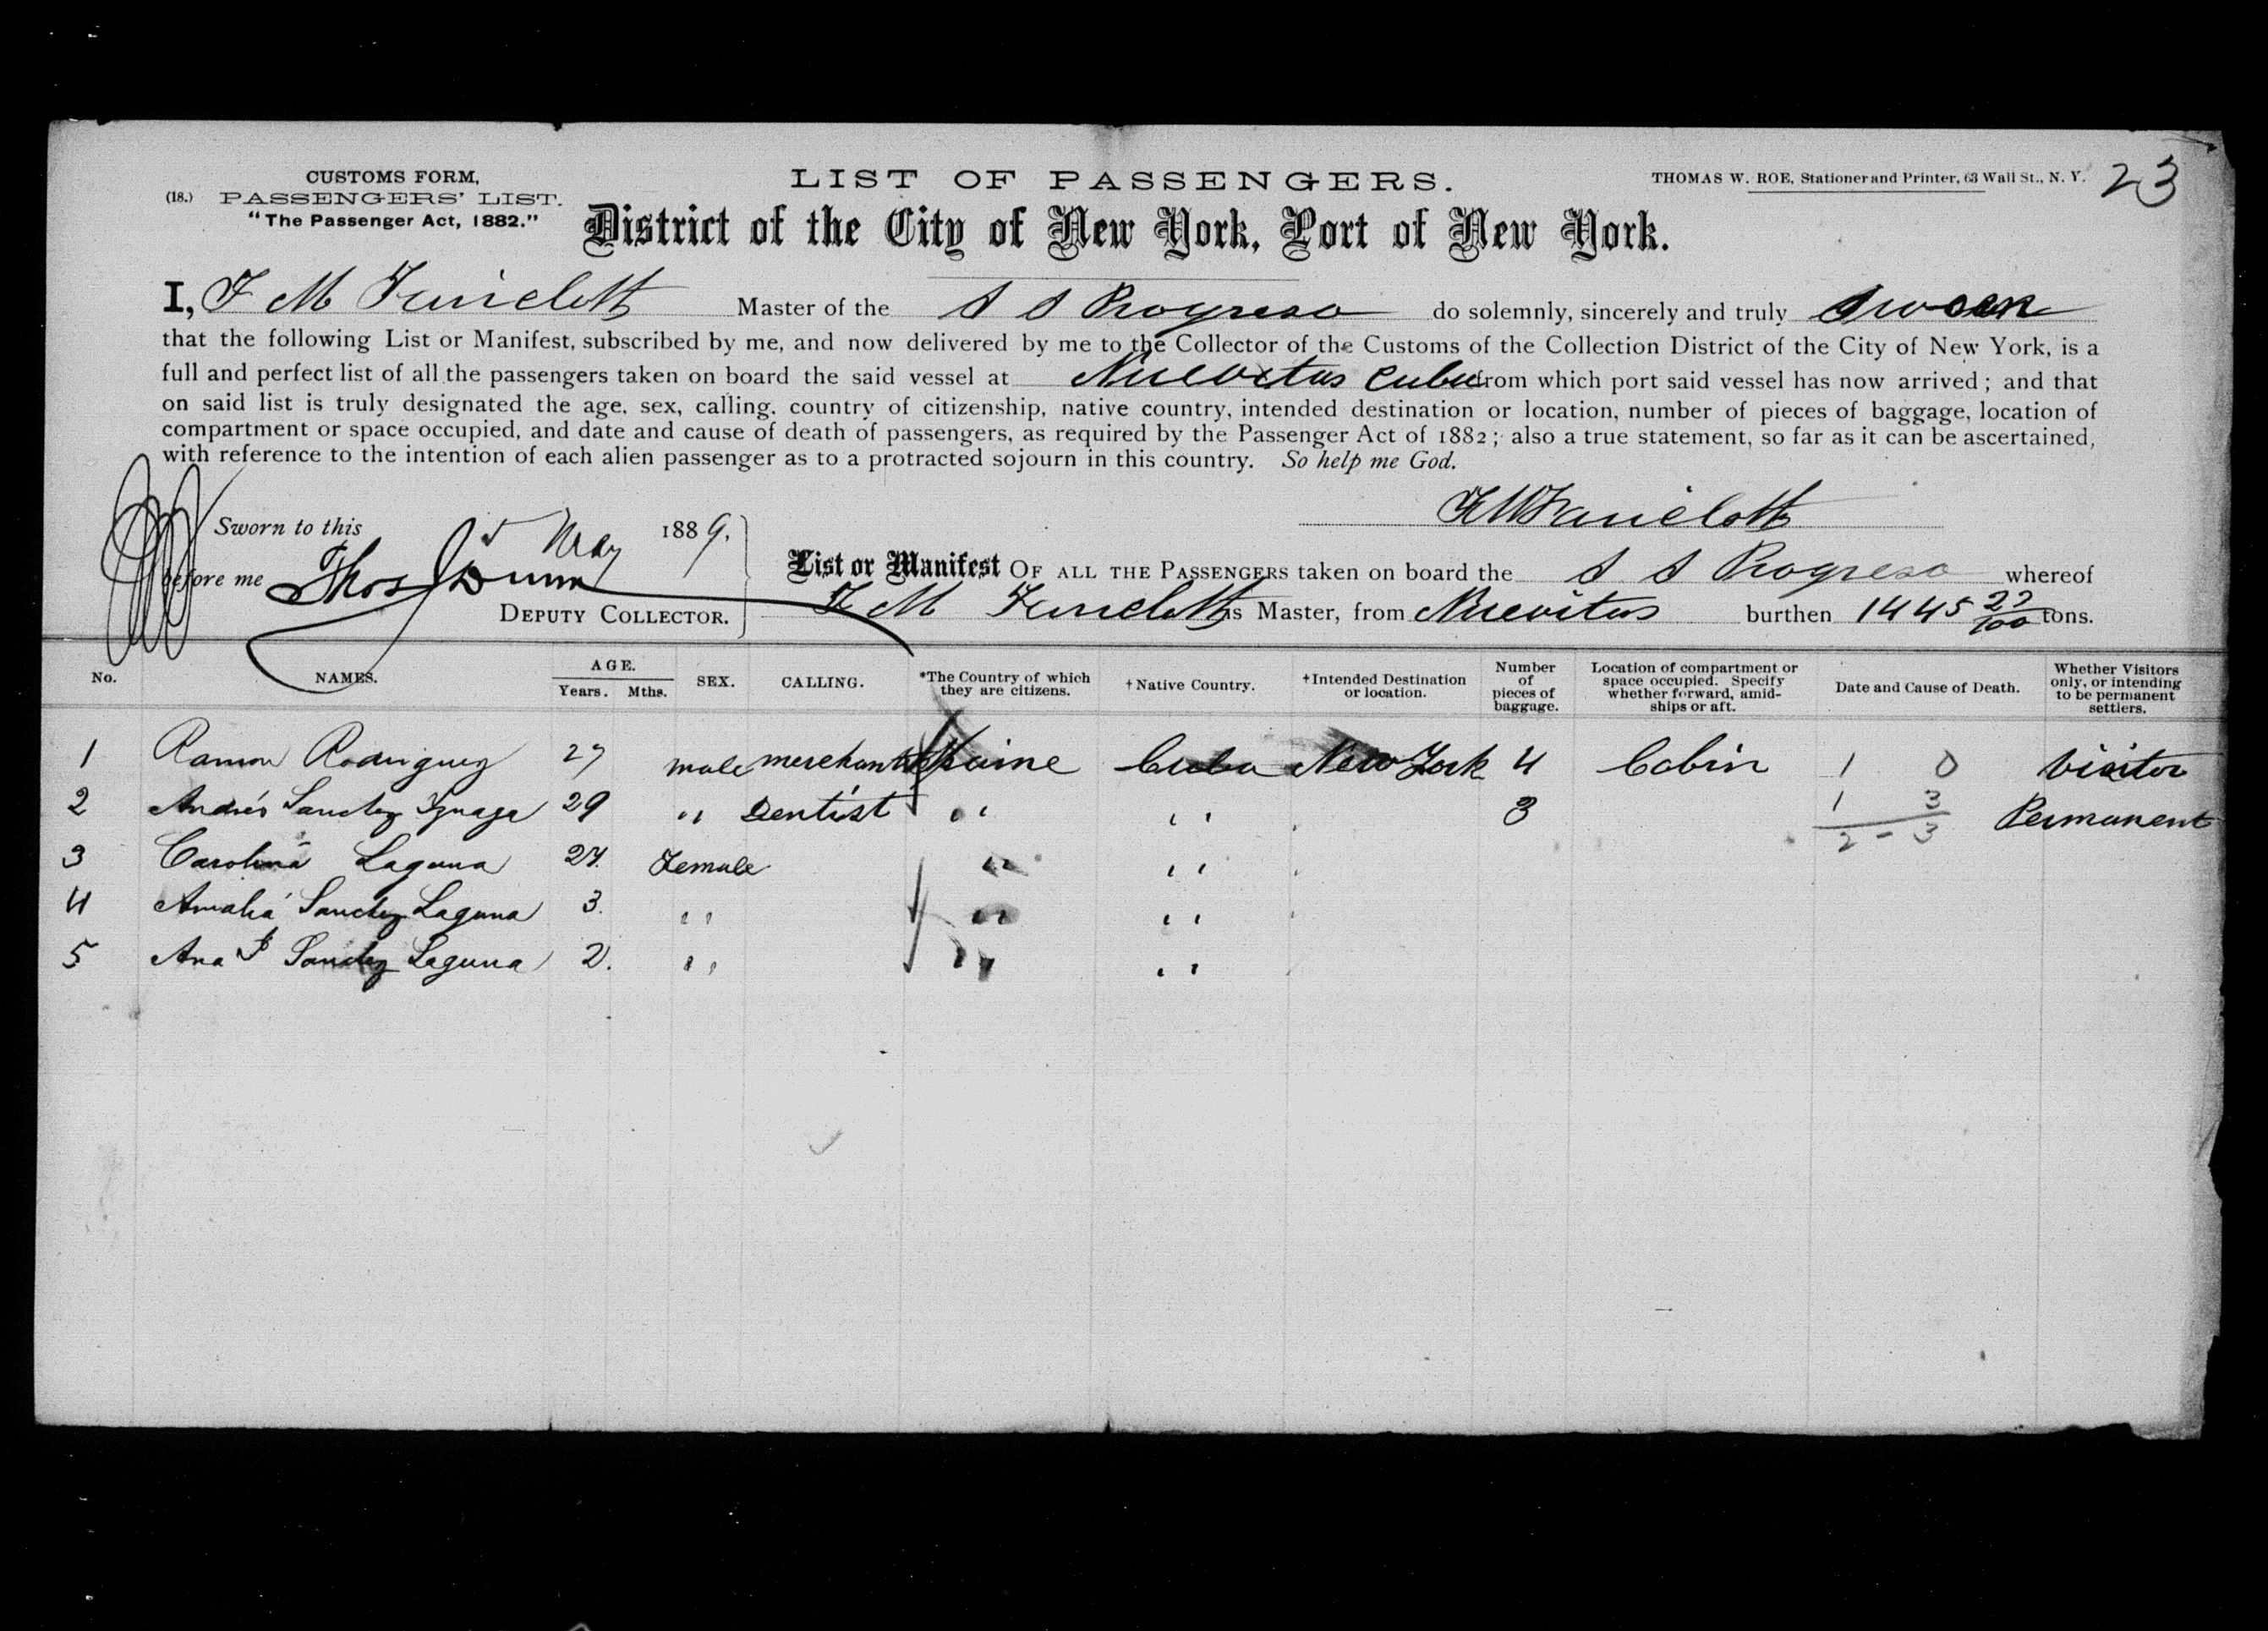 CUSTOMS FORM,
(18.) PASSENGERS' LIST.
"The Passenger Act, 1882."
LIST OF PASSENGERS.
THOMAS W. ROE, Stationer and Printer, 63 Wall St., N. Y.
23
District of the City of New York, Port of New York.
I, F M Faircloth Master of the S S Progreso do solemnly, sincerely and truly swear
that the following List or Manifest, subscribed by me, and now delivered by me to the Collector of the Customs of the Collection District of the City of New York, is a
full and perfect list of all the passengers taken on board the said vessel at Nuevitas Cuba from which port said vessel has now arrived; and that
on said list is truly designated the age, sex, calling, country of citizenship, native country, intended destination or location, number of pieces of baggage, location of
compartment or space occupied, and date and cause of death of passengers, as required by the Passenger Act of 1882; also a true statement, so far as it can be ascertained,
with reference to the intention of each alien passenger as to a protracted sojourn in this country. So help me God.
F M Faircloth
Sworn to this May 1889,
before me Thos Dunn
DEPUTY COLLECTOR.
List or Manifest OF ALL THE PASSENGERS taken on board the S S Progreso whereof
F M Faircloth is Master, from Nuevitas burthen 1445 27/100 tons.
No. NAMES. AGE. Years. Mths. SEX. CALLING. *The Country of which they are citizens. †Native Country. †Intended Destination or location. Number of pieces of baggage. Location of compartment or space occupied. Specify whether forward, amidships or aft. Date and Cause of Death. Whether Visitors only, or intending to be permanent settlers.
1 Ramon Rodriguez 27 male merchant Spaine Cuba New York 4 Cabin 1 0 Visitor
2 Andrés Sanchez 29 " Dentist " " 3 1 3 Permanent
2 - 3
3 Carolina Laguna 24. Female " "
4 Amalia Sanchez Laguna 3. " " "
5 Ana Sanchez Laguna 2. " " "